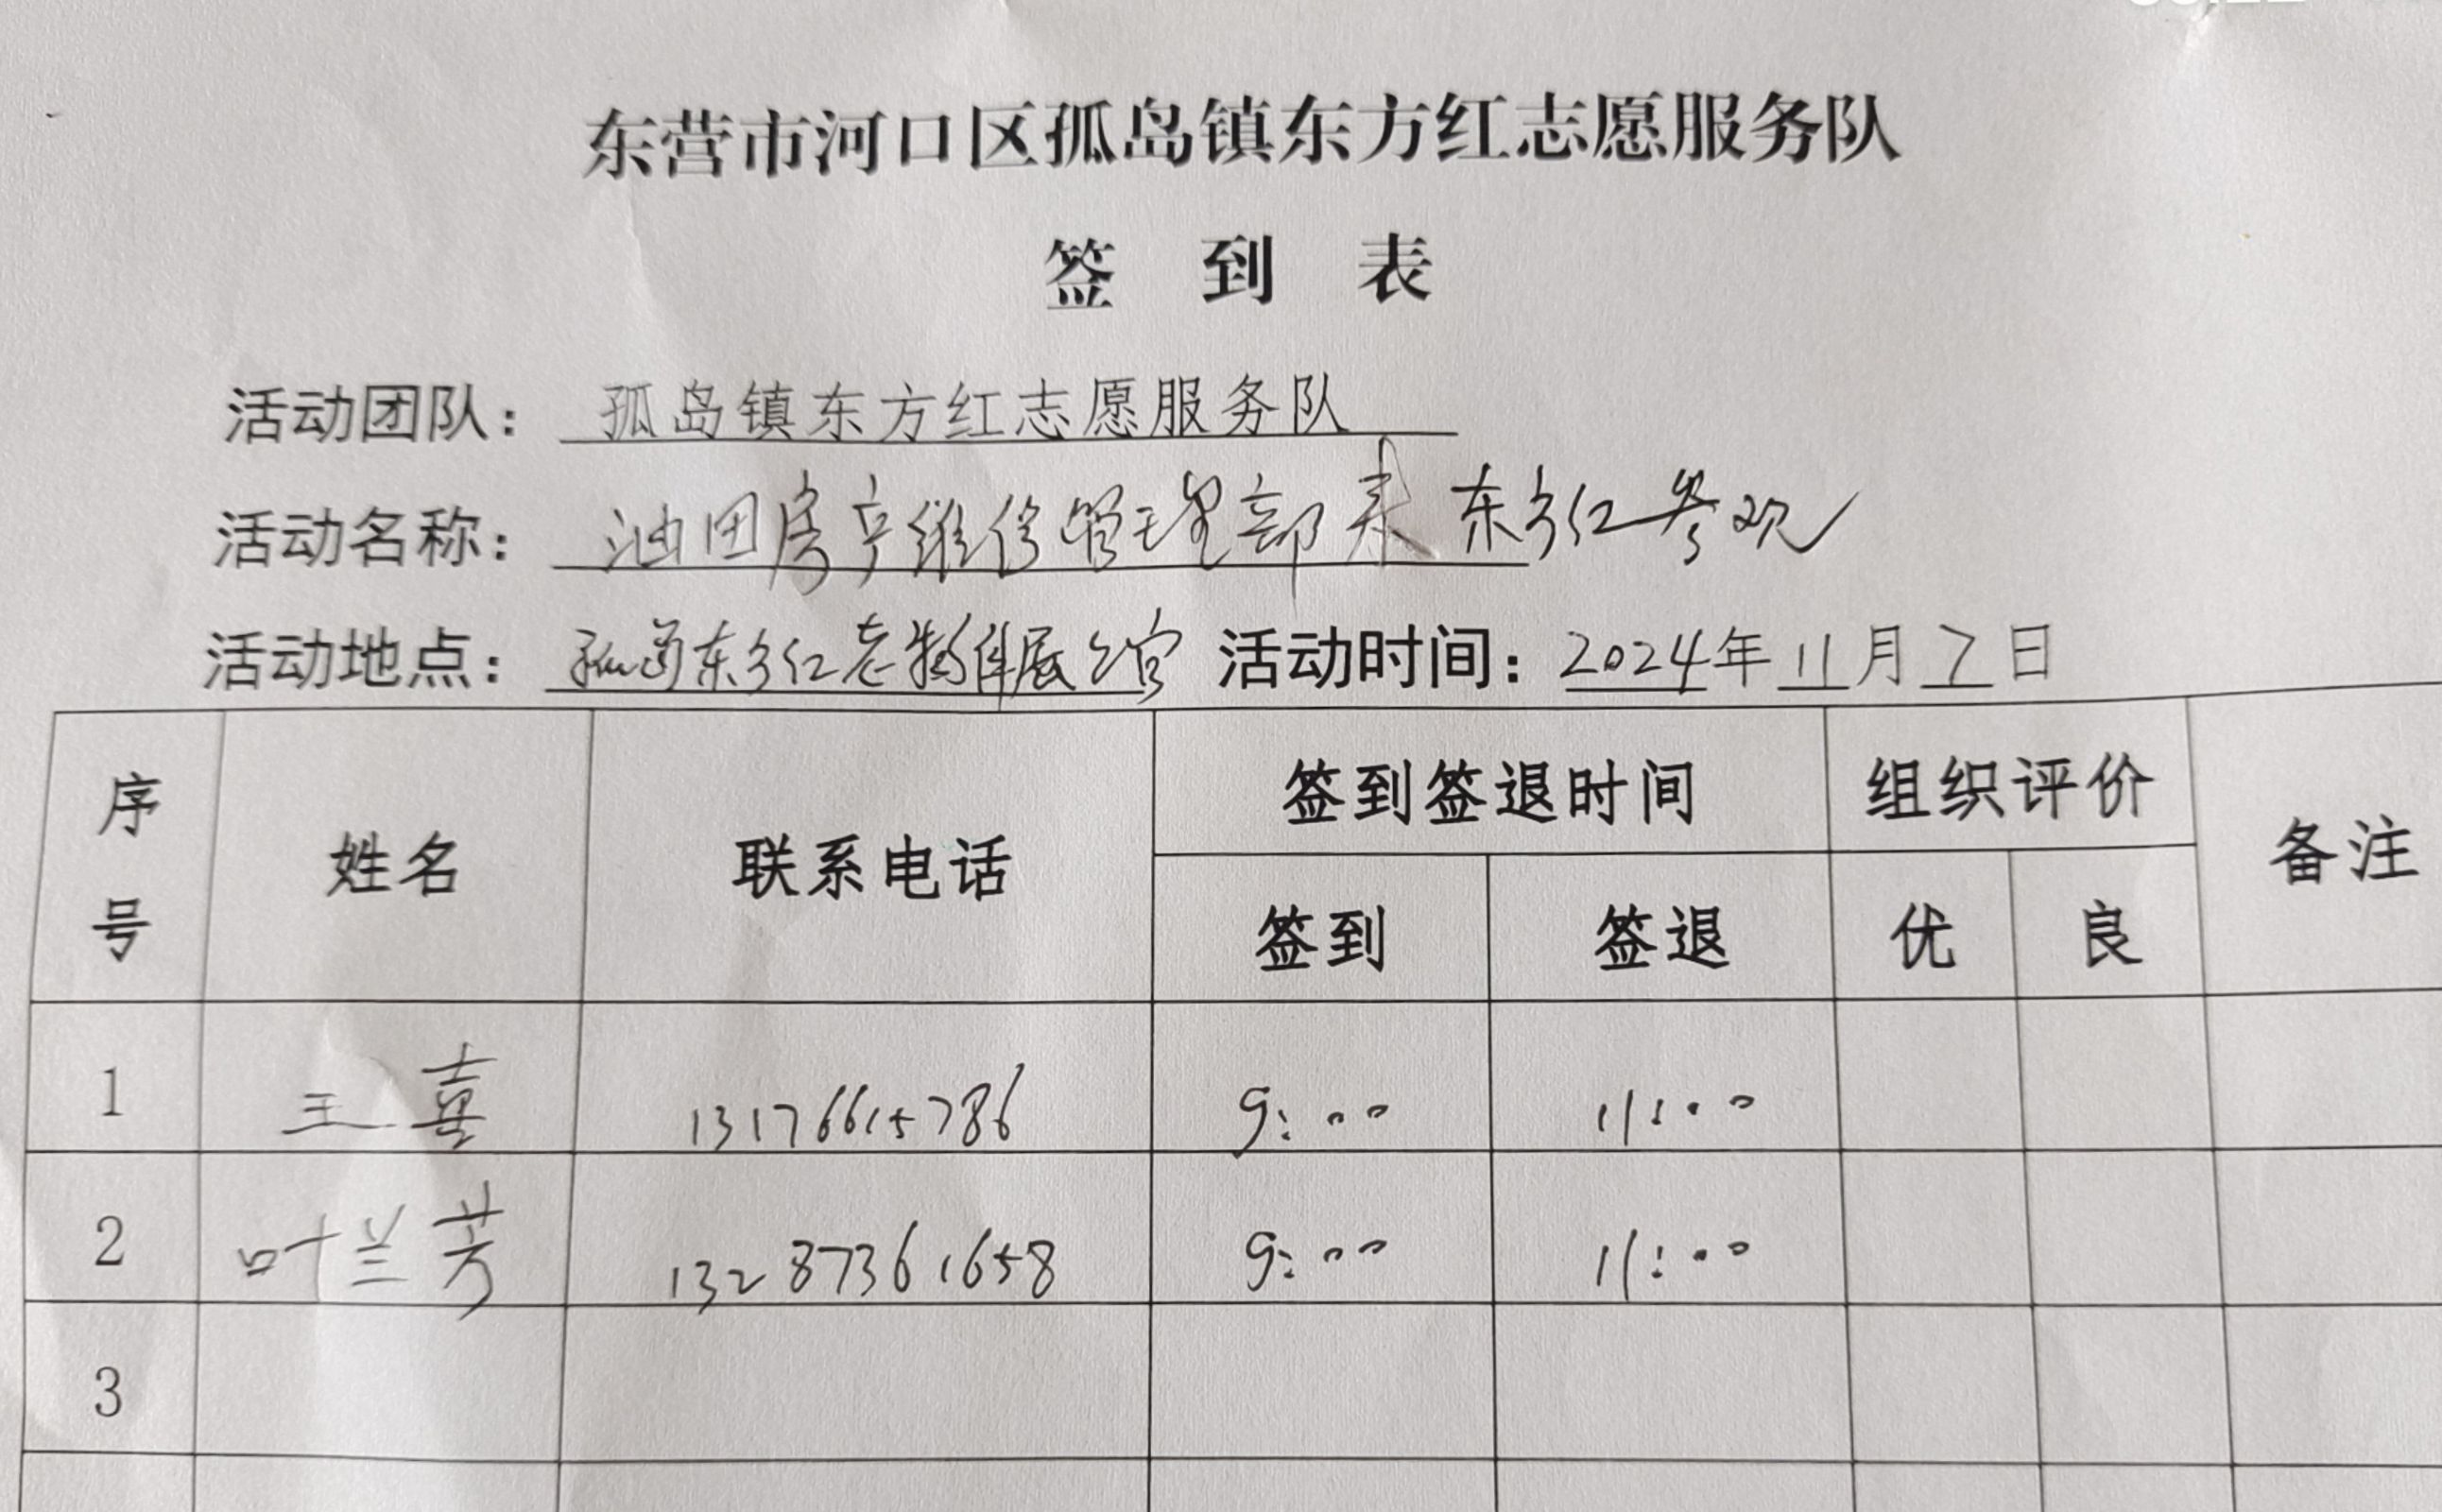 东营市河口区孤岛镇东方红志愿服务队
签 到 表
活动团队： 孤岛镇东方红志愿服务队
活动名称： 油田房产维修管理部来东方红参观
活动地点： 孤岛东方红老物件展馆 活动时间：2024年11月7日
序号 姓名 联系电话 签到签退时间 组织评价 备注
签到 签退 优 良
1 王喜 13176615786 9:00 11:00
2 叶兰芳 13287361658 9:00 11:00
3